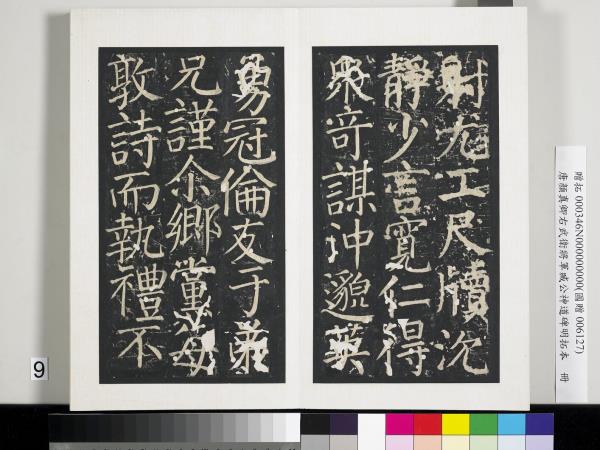 射尤工尺牘沈
靜少言寬仁得
眾竒謀沖邈英
勇冠倫友于弟
兄謹尒鄉黨每
敦詩而執禮不
贈拓 000346N000000000(國贈 006127)
唐顏真卿右武衛將軍臧公神道碑明拓本 冊
9